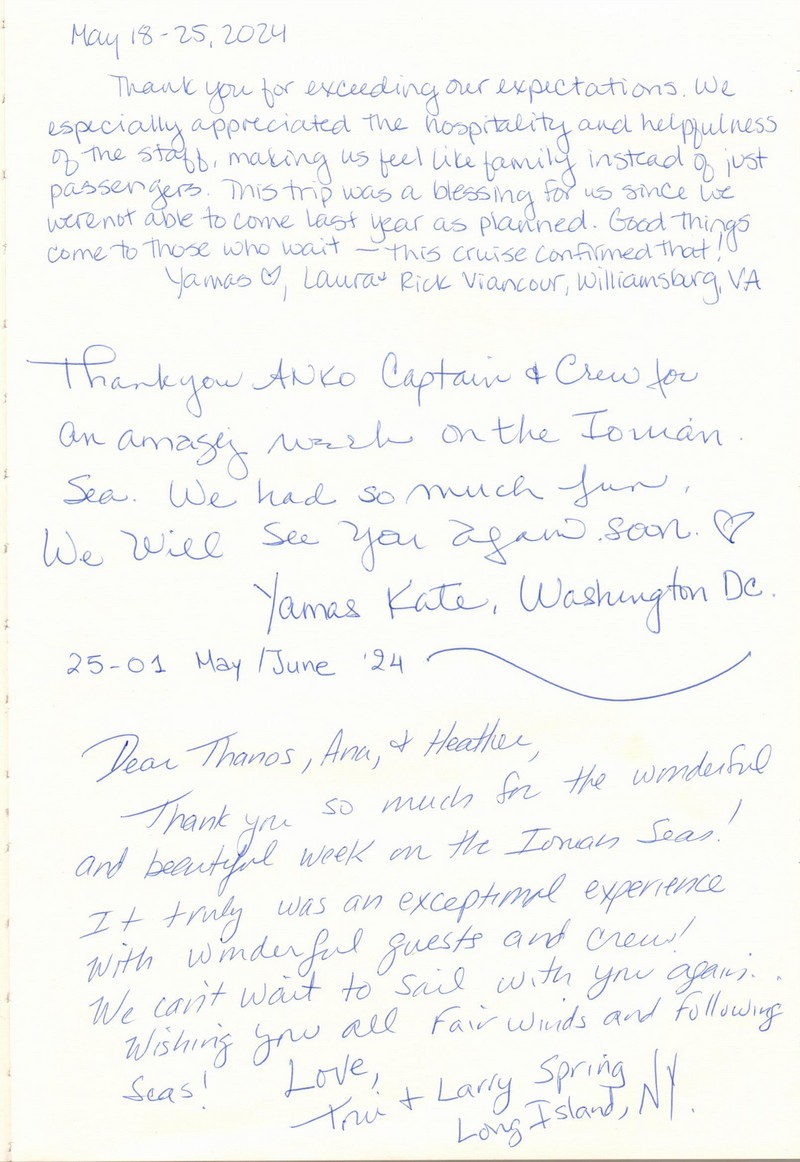 May 18-25, 2024
Thank you for exceeding our expectations. We
especially appreciated the hospitality and helpfulness
of the staff, making us feel like family instead of just
passengers. This trip was a blessing for us since we
were not able to come last year as planned. Good things
come to those who wait — this cruise confirmed that!
Yamas ♡, Laura & Rick Viancour, Williamsburg, VA
Thank you ANKO Captain & Crew for
an amazing week on the Ionian
Sea. We had so much fun.
We will see you again soon. ♡
Yamas Kate, Washington Dc.
25-01 May/June '24
Dear Thanos, Ana, & Heather,
Thank you so much for the wonderful
and beautiful week on the Ionian Seas!
It truly was an exceptional experience
with wonderful guests and crew!
We can't wait to sail with you again.
Wishing you all fair winds and following
Seas! Love,
& Larry Spring
Long Island, NY.